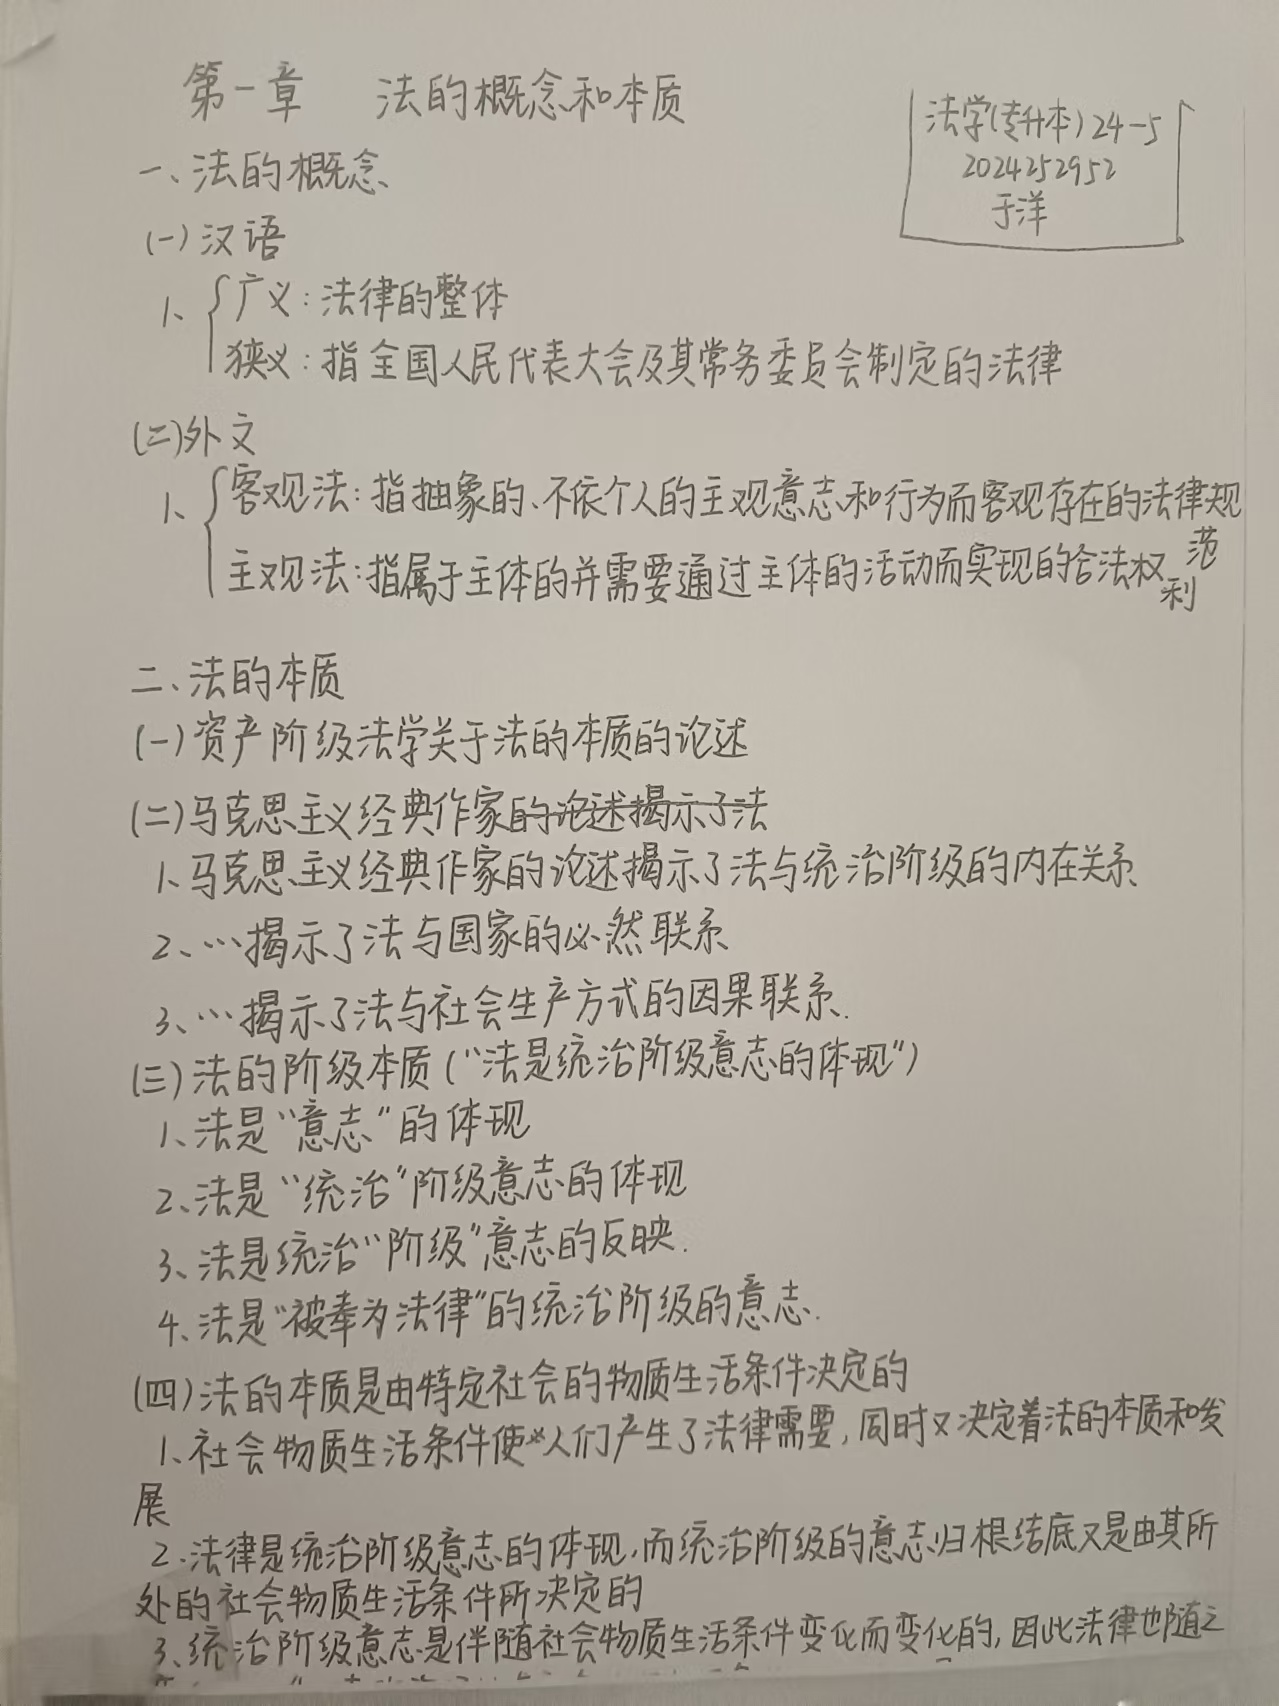 第一章 法的概念和本质
法学(专升本)24-5
2024252952
于洋
一、法的概念
(一)汉语
1、广义:法律的整体
狭义:指全国人民代表大会及其常务委员会制定的法律
(二)外文
1、客观法:指抽象的、不依个人的主观意志和行为而客观存在的法律规范
主观法:指属于主体的并需要通过主体的活动而实现的合法权利
二、法的本质
(一)资产阶级法学关于法的本质的论述
(二)马克思主义经典作家的论述揭示了法
1、马克思主义经典作家的论述揭示了法与统治阶级的内在关系
2、…揭示了法与国家的必然联系
3、…揭示了法与社会生产方式的因果联系.
(三)法的阶级本质(“法是统治阶级意志的体现”)
1、法是“意志”的体现
2、法是“统治”阶级意志的体现
3、法是统治“阶级”意志的反映.
4、法是“被奉为法律”的统治阶级的意志.
(四)法的本质是由特定社会的物质生活条件决定的
1、社会物质生活条件使人们产生了法律需要,同时又决定着法的本质和发
展
2、法律是统治阶级意志的体现,而统治阶级的意志归根结底又是由其所
处的社会物质生活条件所决定的
3、统治阶级意志是伴随社会物质生活条件变化而变化的,因此法律也随之